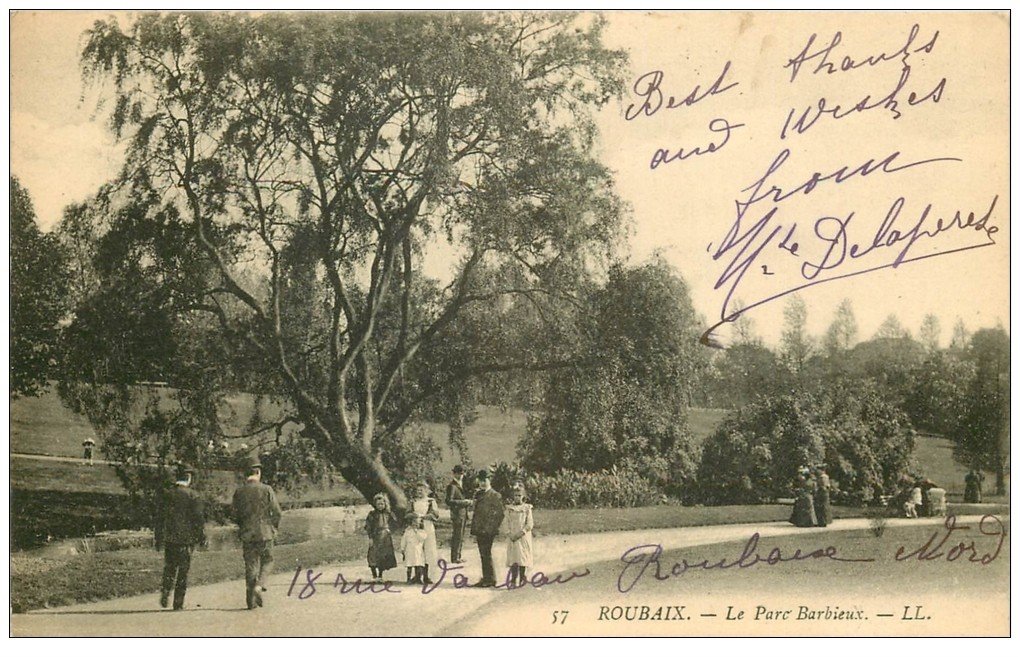 Best thanks
and Wishes
from
Mlle Delaperse
18 rue Vauban Roubaix Nord
57 ROUBAIX. — Le Parc Barbieux. — LL.